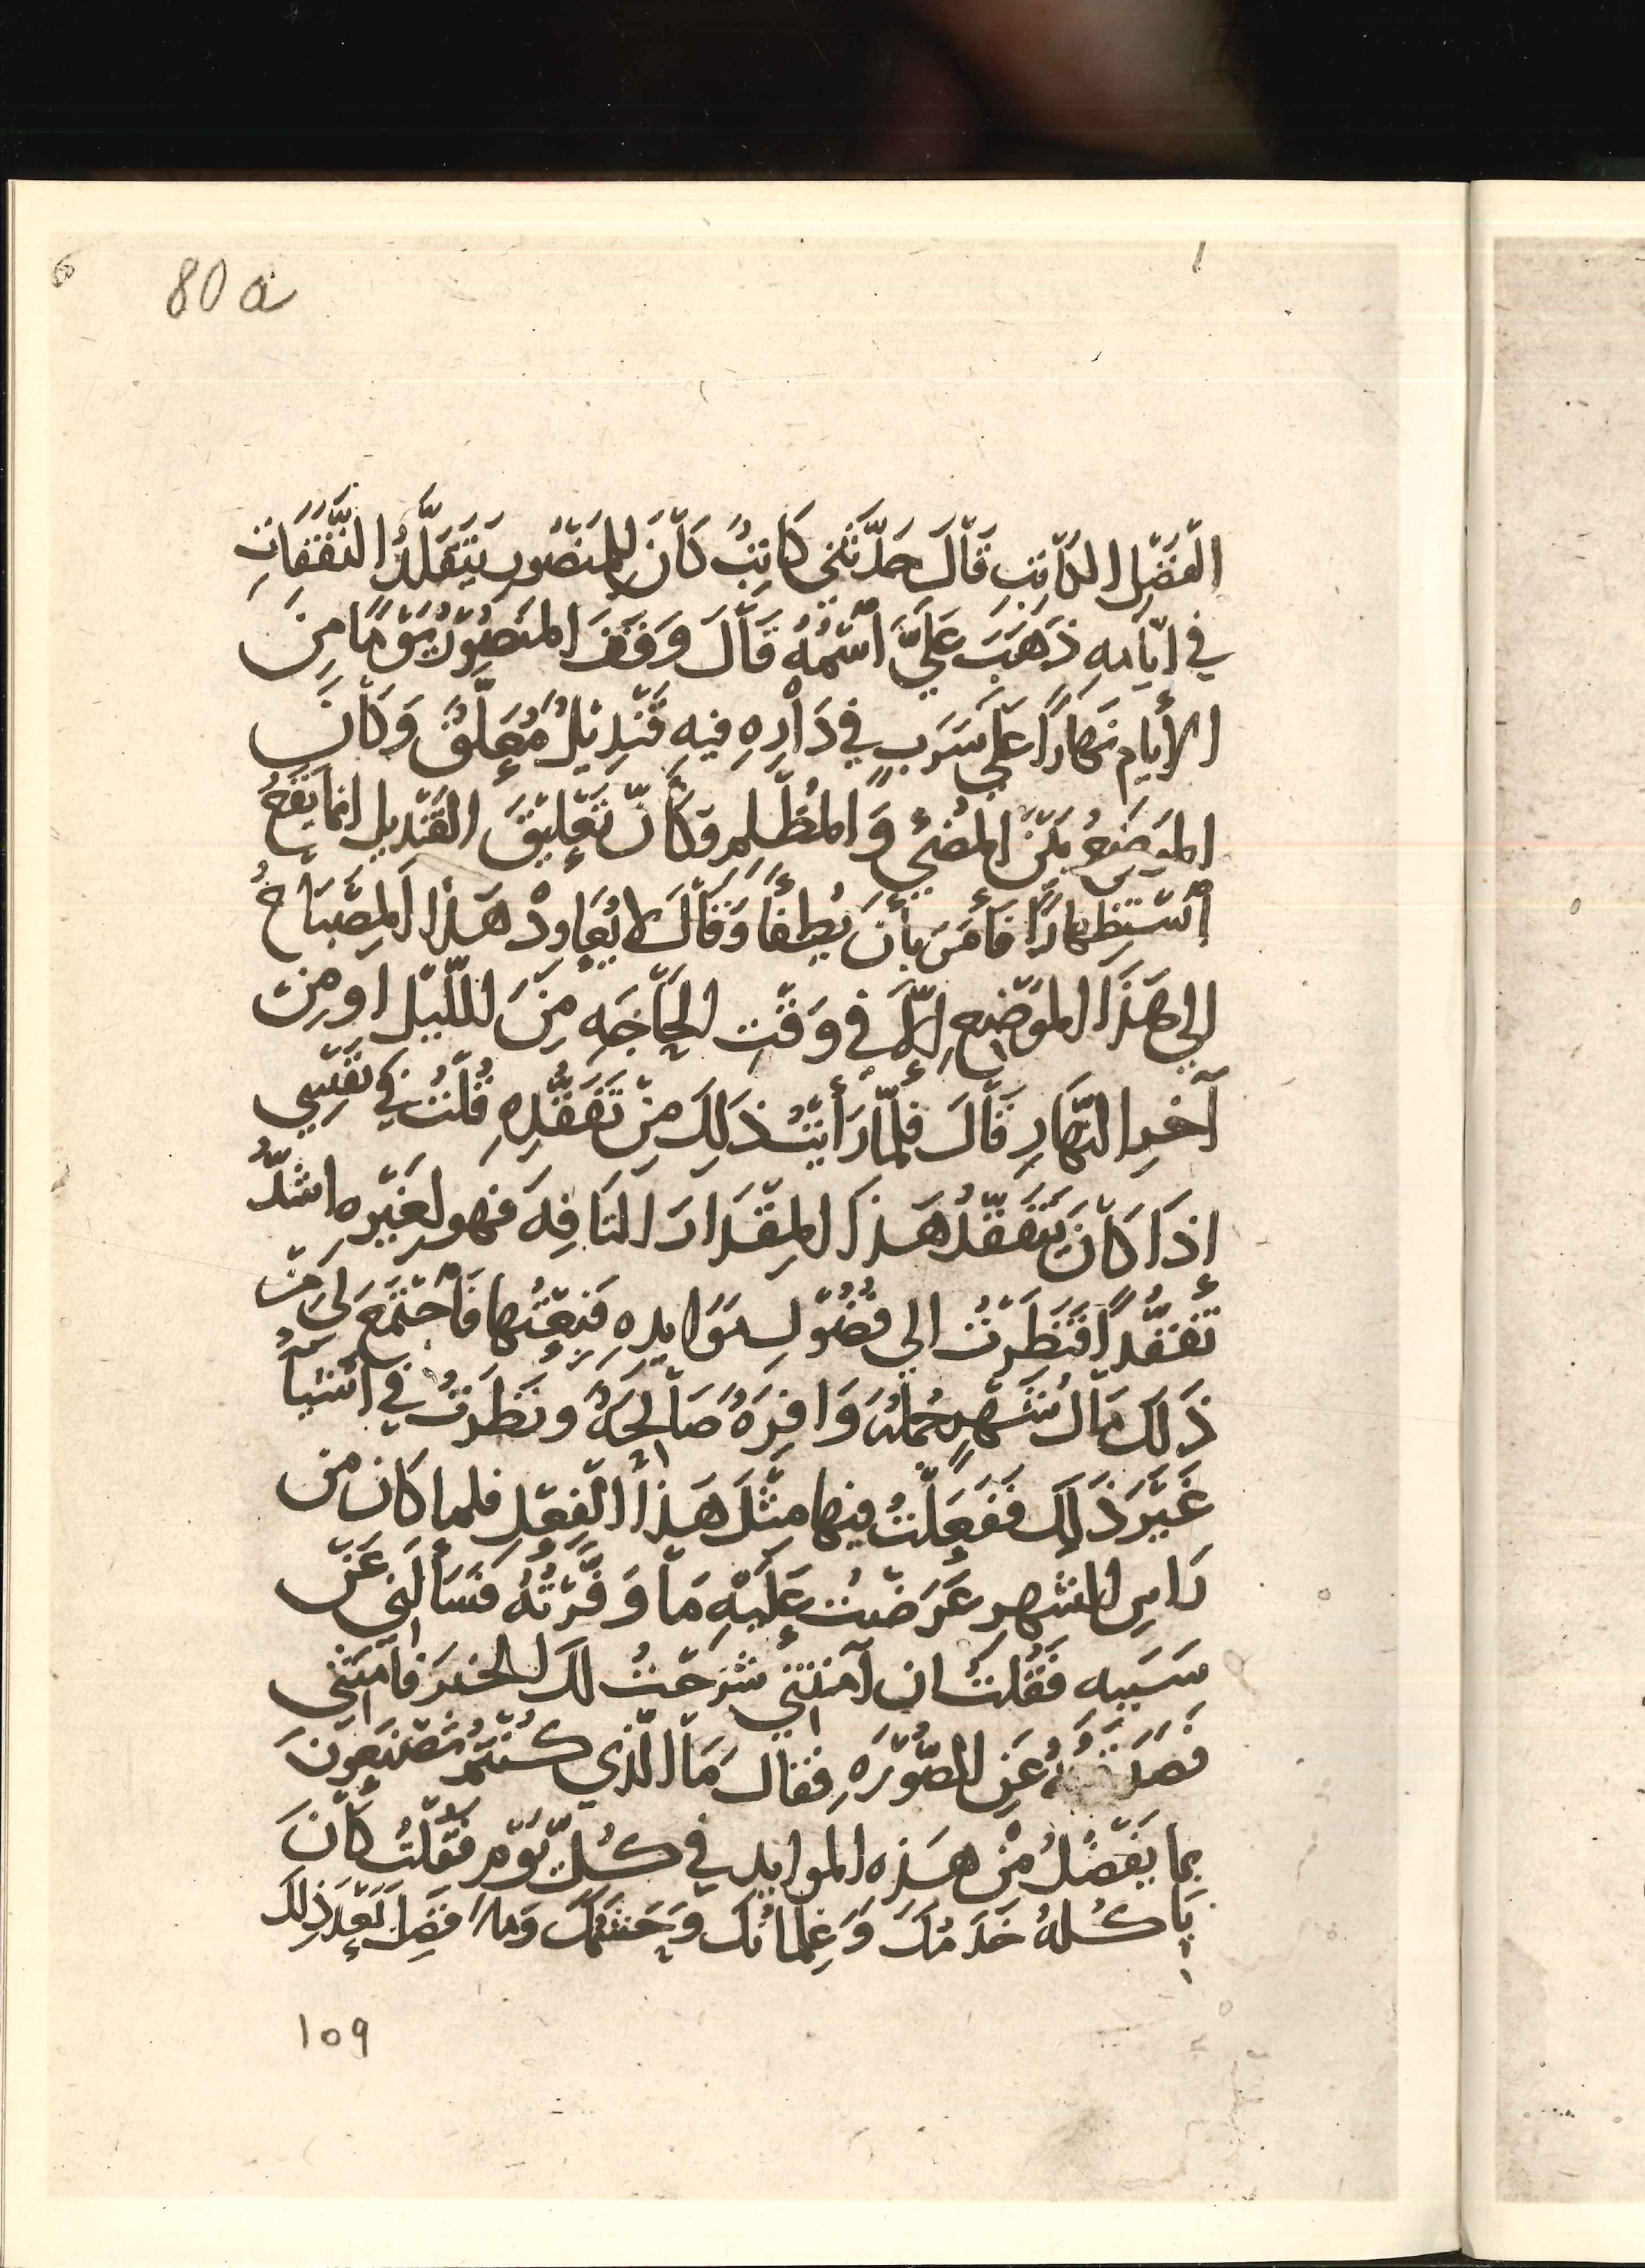 80 a
الفَضْلِ الكَاتِبِ قَالَ حَدَّثَني كَاتِبٌ كَانَ لِلمَنصُورِ يَتَقَلَّدُ النَّفَقَاتِ
في ايّامِهِ ذَهَبَ عَلَيَّ اسْمُهُ قَالَ وَقَفَ المَنصُورُ يَوْمًا مِنَ
الأيام نَهَارًا عَلَي سَرَبٍ في دَارِهِ فيهِ قَنْدِيْلٌ مُعَلَّقٌ وَكَانَ
المَوضِعُ بَيْنَ المُضيْ وَالمُظْلِمِ وَكَأنَّ تَعْلِيْقَ القَنْدِيلِ انمَا يَقَعُ
اسْتِظهارًا فَأمَرَ بأنْ يُطفأ وَقَالَ لا يُعَاودْ هَذَا المِصْبَاحُ
الي هَذَا المَوْضِعِ إلاَّ في وَقْتِ الحَاجَهِ مِنَ اللّيْل اومِنْ
آخرِ النَّهَارِ قَالَ فَلمَّا رَأيْتُ ذَلِكَ مِنْ تَفَقُّدِهِ قُلْتُ في نَفْسِي
إذَا كَانَ يَتَفَقَّدُ هَذَا المِقْدَارَ التَافِهَ فهو لِغَيْرِه اشَدُّ
تَفَقُّدًا فَنَظَرْتُ الي فُضُوْلِ مَوَايدِهِ فَبِعْتُها فَاجْتَمَعَ لي مِنْ
ذَلكَ مَالَ شَهْرٍ جُمْلَةً وَافِرَةً صَالِحَةً وَنَظَرْتُ في اشْيَاءَ
غَيْرَ ذَلِكَ فَفَعَلْتُ فيها مِثْلَ هَذَا الفِعْلِ فلما كَان من
رَاسِ الشهرِ عَرَضْتُ عَلَيْهِ مَا وَفَّرْتُهُ فَسَأَلَني عَنْ
سَبَبِه فَقُلتُ ان آمَنْتَنِي شَرَحْتُ لَكَ الخبَرَ فَآمَنَنِي
عَنِ الصُّوْرَهِ فقالَ مَا الّذي كنتُمْ تَصْنَعُونَ
بما يَفْضُلُ مِنْ هَذه الموايد في كُلِّ يَوْم فَقُلْتُ كَانَ
يَاكُلهُ خَدَمُكَ وَغِلمانُكَ وَحَشَمُكَ وَما فَضَلَ بَعْدَ ذلِكَ
109